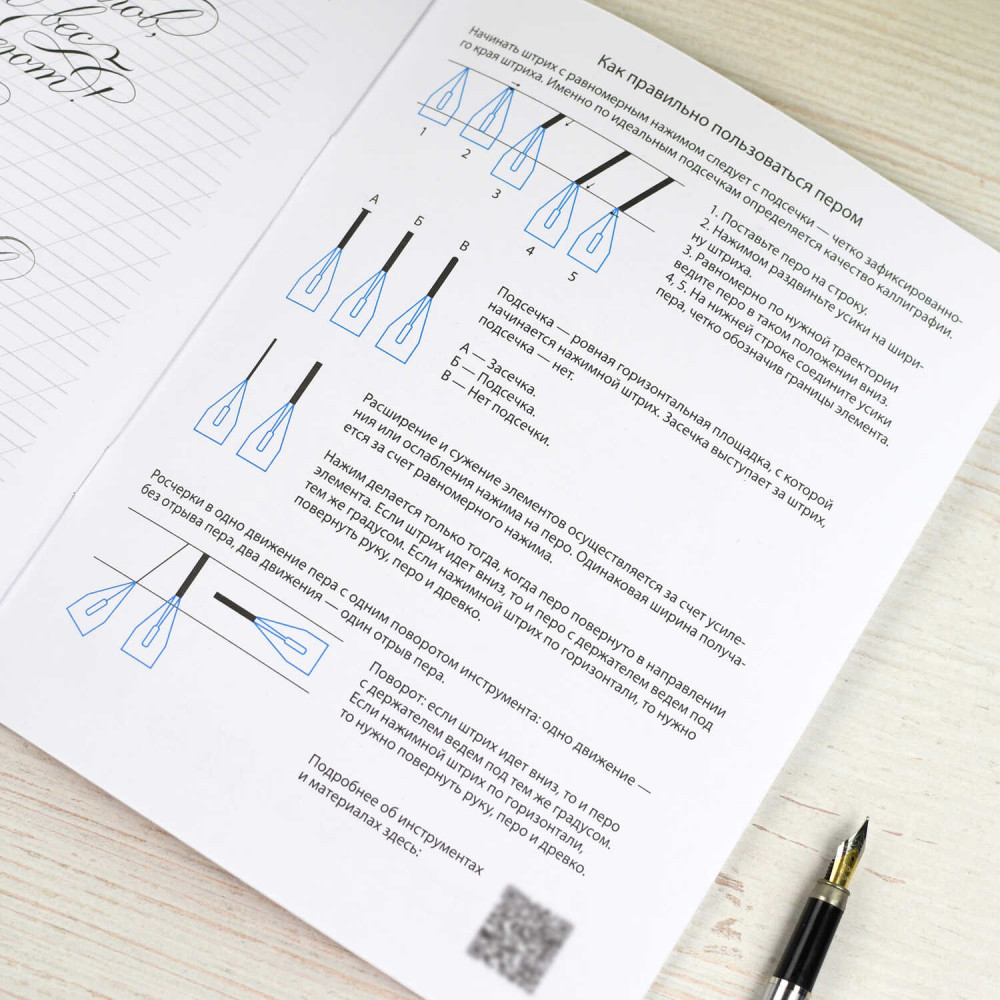 Как правильно пользоваться пером
Начинать штрих с равномерным нажимом следует с подсечки — четко зафиксированно-
го края штриха. Именно по идеальным подсечкам определяется качество каллиграфии.
1 2 3 4 5
1. Поставьте перо на строку.
2. Нажимом раздвиньте усики на шири-
ну штриха.
3. Равномерно по нужной траектории
ведите перо в таком положении вниз.
4, 5. На нижней строке соедините усики
пера, четко обозначив границы элемента.
А Б В
Подсечка — ровная горизонтальная площадка, с которой
начинается нажимной штрих. Засечка выступает за штрих,
подсечка — нет.
А — Засечка.
Б — Подсечка.
В — Нет подсечки.
Расширение и сужение элементов осуществляется за счет усиле-
ния или ослабления нажима на перо. Одинаковая ширина получа-
ется за счет равномерного нажима.
Нажим делается только тогда, когда перо повернуто в направлении
элемента. Если штрих идет вниз, то и перо с держателем ведем под
тем же градусом. Если нажимной штрих по горизонтали, то нужно
повернуть руку, перо и древко.
Росчерки в одно движение пера с одним поворотом инструмента: одно движение —
без отрыва пера, два движения — один отрыв пера.
Поворот: если штрих идет вниз, то и перо
с держателем ведем под тем же градусом.
Если нажимной штрих по горизонтали,
то нужно повернуть руку, перо и древко.
Подробнее об инструментах
и материалах здесь: